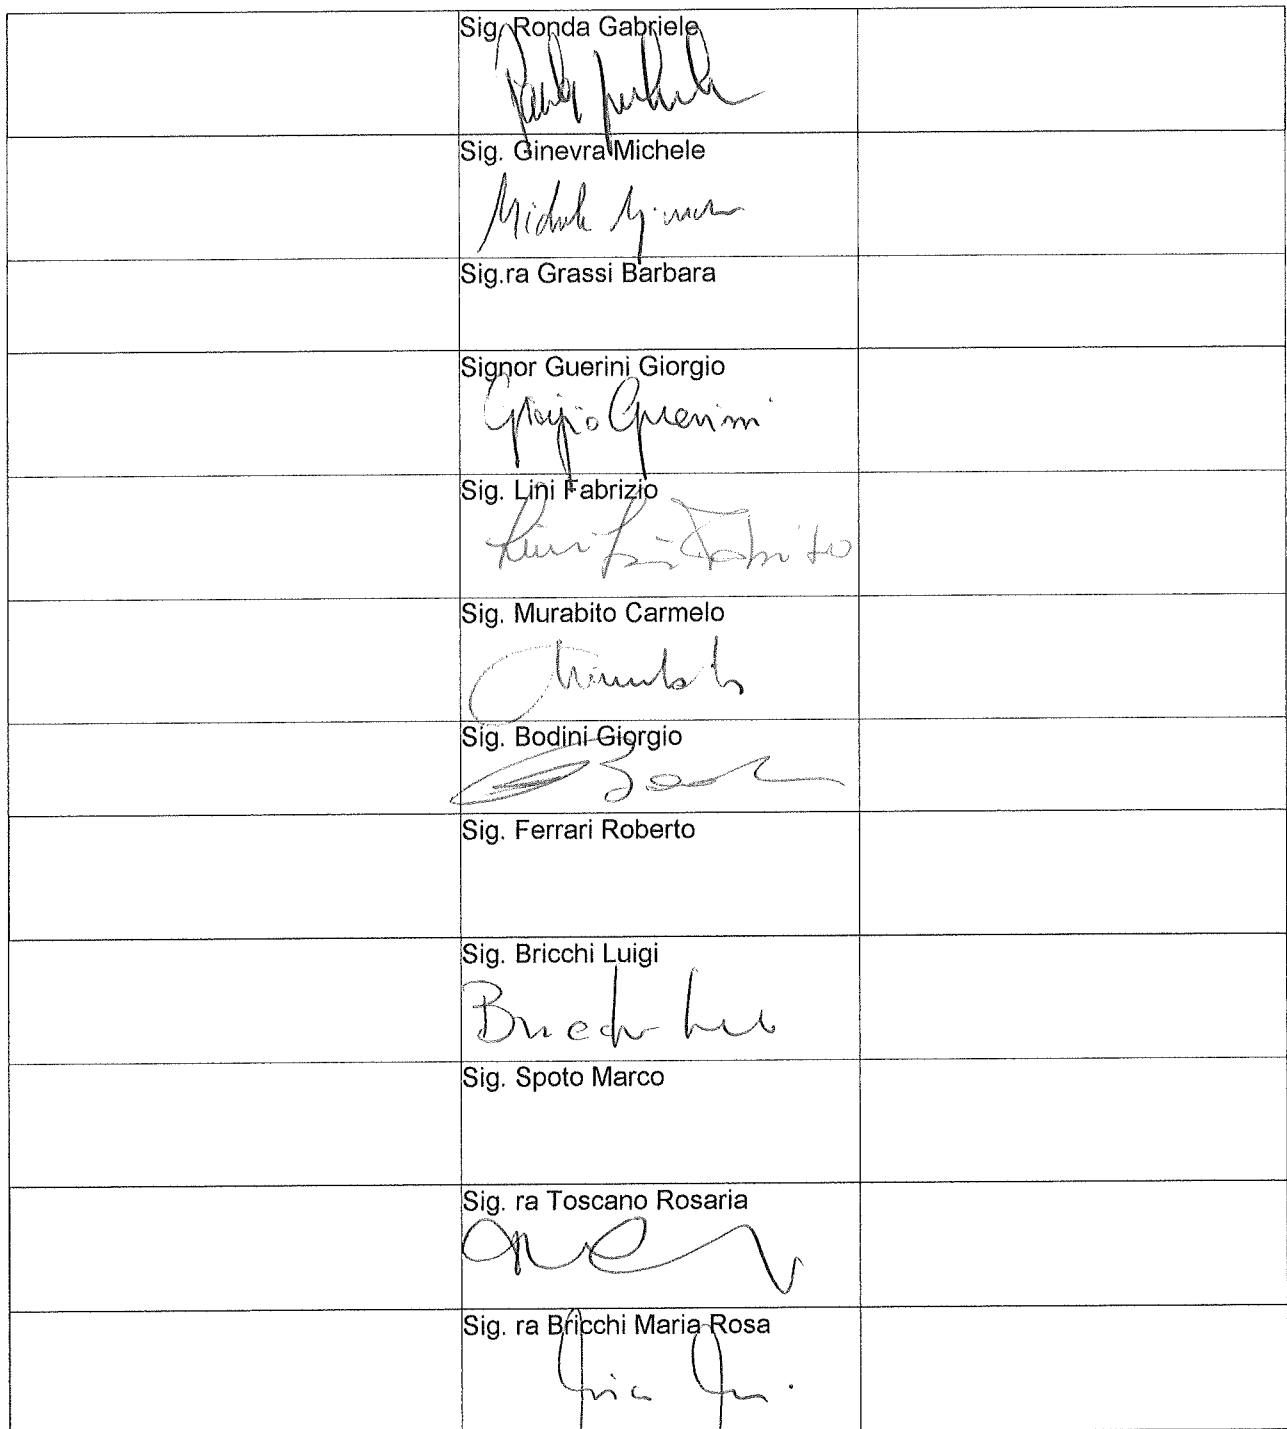 Sig. Ronda Gabriele
Sig. Ginevra Michele
Michele Ginevra
Sig.ra Grassi Barbara
Signor Guerini Giorgio
Giorgio Guerini
Sig. Lini Fabrizio
Sig. Murabito Carmelo
Sig. Bodini Giorgio
Sig. Ferrari Roberto
Sig. Bricchi Luigi
Sig. Spoto Marco
Sig. ra Toscano Rosaria
Sig. ra Bricchi Maria Rosa